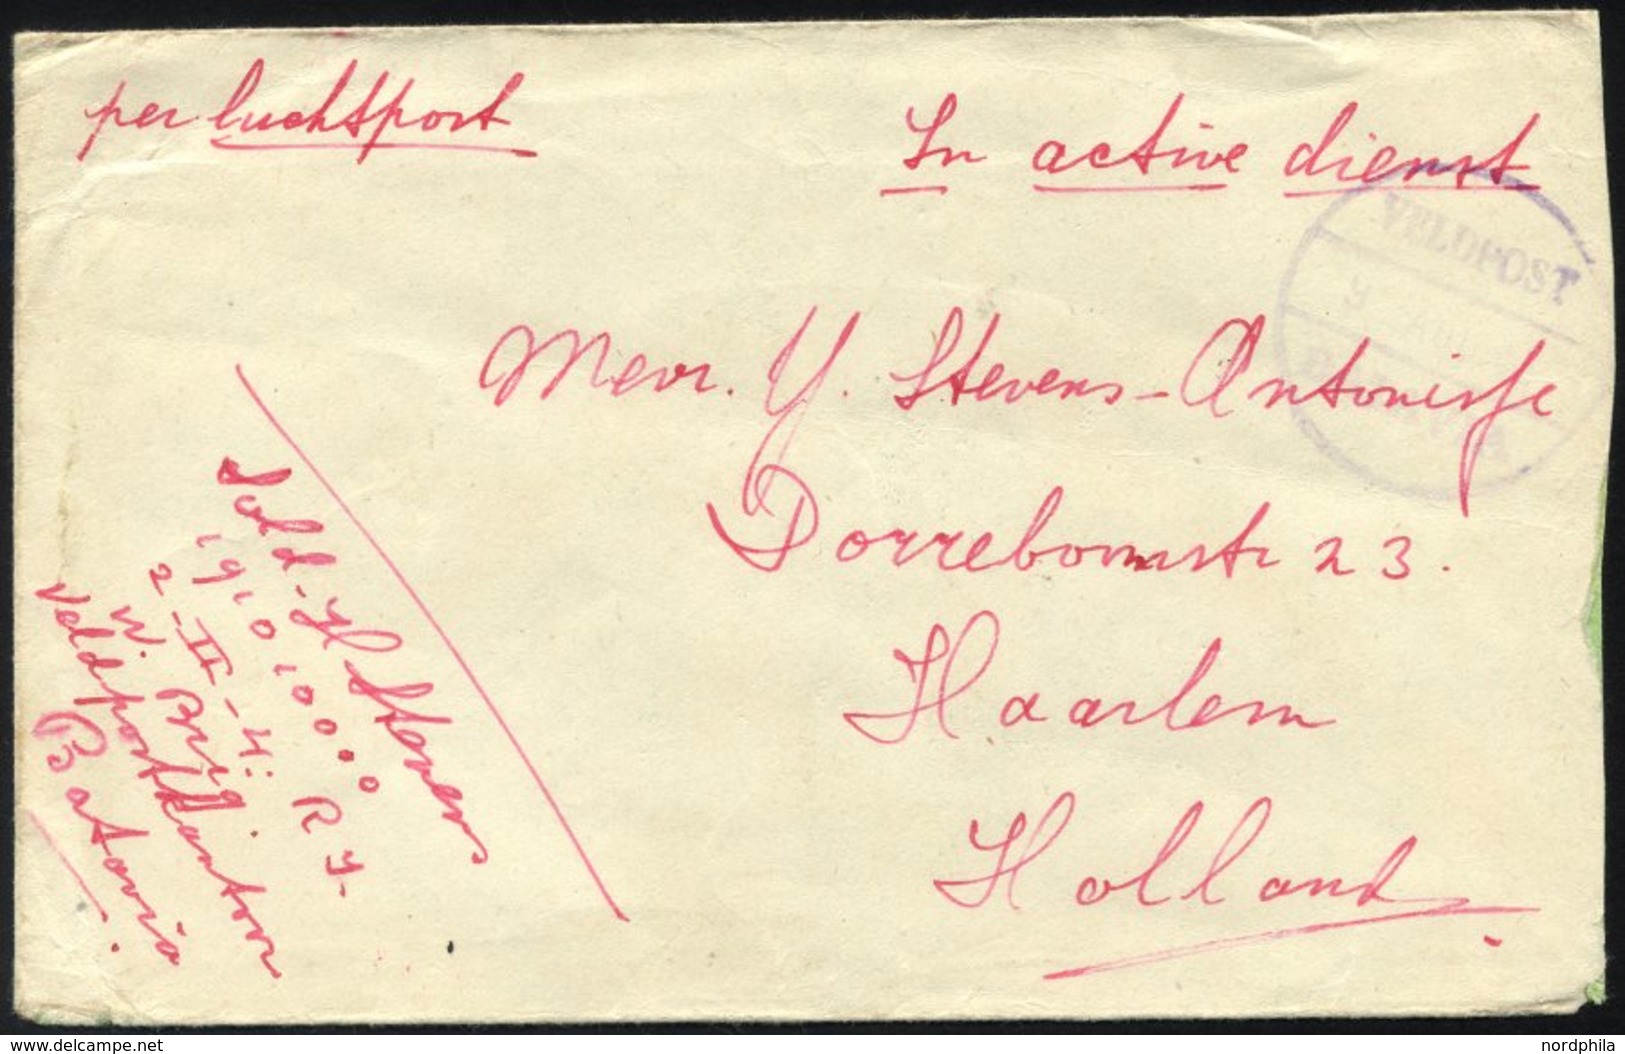 per luchtpost
In active dienst
VELDPOST
9
BATAVIA
Mevr. Y. Stevens-Antonisse
Dorreboomstr 23.
Haarlem
Holland
Sold. H Stevens
191010000 R Y.
2-II-4:
W. Brig.
Veldpostkantoor
Batavia
delcampe.net
nordphila